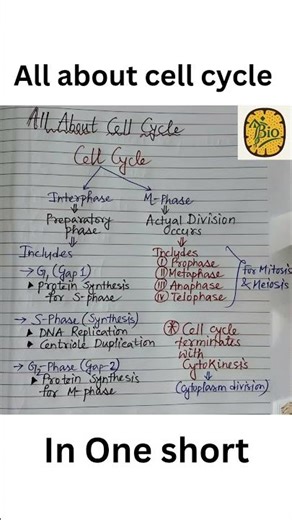 All about cell cycle
Bio
All About Cell Cycle
Cell Cycle
Interphase
Preparatory
phase
Includes
→ G₁ (Gap 1)
▸ Protein Synthesis
for S-phase
→ S-Phase (Synthesis)
▸ DNA Replication
▸ Centriole Duplication
→ G₂-Phase (Gap-2)
▸ Protein Synthesis
for M-phase
M-Phase
Actual Division
Occurs
Includes
Ⓘ Prophase
Ⅱ Metaphase
Ⅲ Anaphase
Ⅳ Telophase
for Mitosis
& Meiosis
* Cell cycle
terminates
with
Cytokinesis
(Cytoplasm division)
In One short